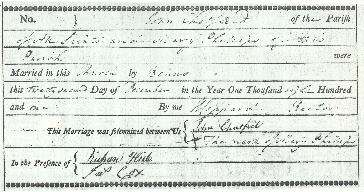 No. John Chatfield of the Parish
of and Mary Phillips of this
Parish were
Married in this Church by Banns
this twenty second Day of December in the Year One Thousand eight Hundred
and one By me Rector
This Marriage was solemnized between Us { John Chatfield
The mark of Mary Phillips
In the Presence of {